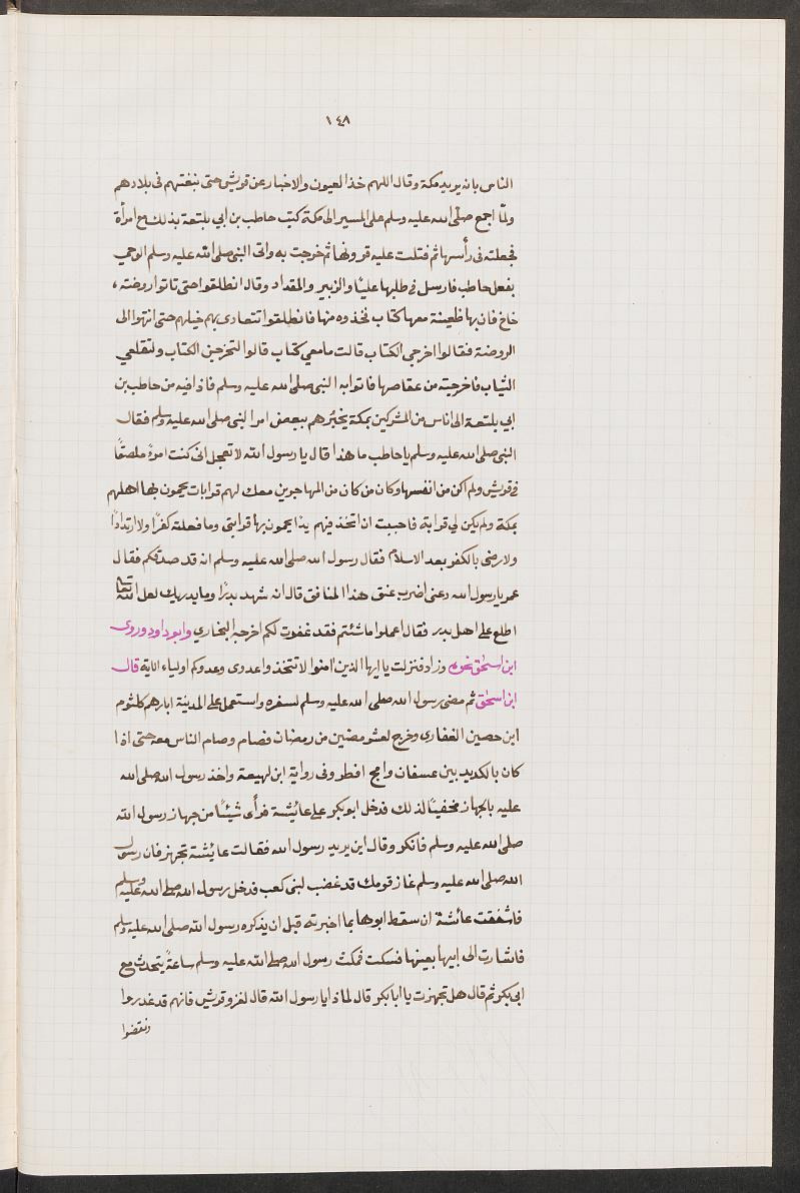 ١٤٨
الناس بانه يريد مكة وقال اللهم خذ العيون والاخبار عن قريش حتى نبغتهم فى بلادهم
ولمّا اجمع صلّى الله عليه وسلم على المسير الى مكة كتب حاطب بن ابي بلتعة بذلك مع امرأة
فجعلته فى رأسها ثم فتلت عليه قرونها ثم خرجت به واتى النبى صلى الله عليه وسلم الوحي
بفعل حاطب فارسل فى طلبها عليًا والزبير والمقداد وقال انطلقوا حتى تاتوا روضة ،
خاخ فان بها ظعينة معها كتاب فخذوه منها فانطلقوا تتعادى بهم خيلهم حتى انتهوا الى
الروضة فقالوا اخرجي الكتاب قالت ما معي كتاب قالوا لتخرجن الكتاب ولتقلعي
الثياب فاخرجته من عقاصها فاتوا به النبى صلى الله عليه وسلم فاذا فيه من حاطب بن
ابي بلتعة الى اناس من المشركين بمكة يخبرهم ببعض امر النبى صلى الله عليه وسلم فقال
النبى صلى الله عليه وسلم يا حاطب ما هذا قال يا رسول الله لا تعجل انى كنت امرءً ملصقًا
فى قريش ولم اكن من انفسها وكان من كان من المهاجرين معك لهم قرابات يحمون بها اهلهم
بمكة ولم يكن لي قرابة فاحببت ان اتخذ فيهم يدًا يحمون بها قرابتى وما فعلته كفرًا ولا ارتدادًا
ولا رضى بالكفر بعد الاسلام فقال رسول الله صلى الله عليه وسلم انه قد صدقكم فقال
عمر يا رسول الله دعنى اضرب عنق هذا المنافق قال انه شهد بدرًا وما يدريك لعل الله تعالى
اطلع على اهل بدر فقال اعملوا ما شئتم فقد غفرت لكم اخرجه البخاري وابو داود وروى
ابن اسحٰق نحوه وزاد فنزلت يا ايها الذين امنوا لا تتخذوا عدوى وعدوكم اولياء الاية قال
ابن اسحٰق ثم مضى رسول الله صلى الله عليه وسلم لسفره واستعمل على المدينة ابا رهم كلثوم
ابن حصين الغفارى وخرج لعشر مضين من رمضان فصام وصام الناس معه حتى اذا
كان بالكديد بين عسفان وامج افطر وفى رواية ابن لهيعة واخذ رسول الله صلى الله
عليه بالجهاز مخفيًا لذلك فدخل ابو بكر على عائشة فرأى شيئًا من جهاز رسول الله
صلى الله عليه وسلم فانكر وقال اين يريد رسول الله فقالت عايشة تجهز فان رسول
الله صلى الله عليه وسلم غاز قومك قد غضب لبنى كعب فدخل رسول الله صلى الله عليه وسلم
فاشفقت عائشة ان سقط ابوها بما اخبرته قبل ان يذكره رسول الله صلى الله عليه وسلم
فاشارت الى ابيها بعينها فسكت فمكث رسول الله صلى الله عليه وسلم ساعةً يتحدث مع
ابى بكر ثم قال هل تجهزت يا ابا بكر قال لماذا يا رسول الله قال لغزو قريش فانهم قد غدروا
ونقضوا